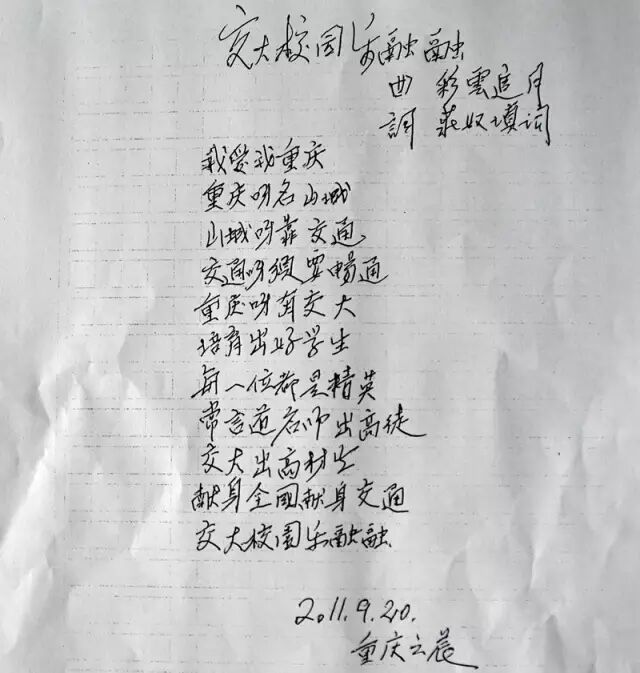 交大校园乐融融
曲 彩雲追月
詞 莊奴填词
我愛我重庆
重庆呀名山城
山城呀靠交通
交通呀須要暢通
重庆呀有交大
培育出好学生
每一位都是精英
常言道名师出高徒
交大出高材生
献身全國献身交通
交大校園乐融融
2011.9.20.
重庆之晨